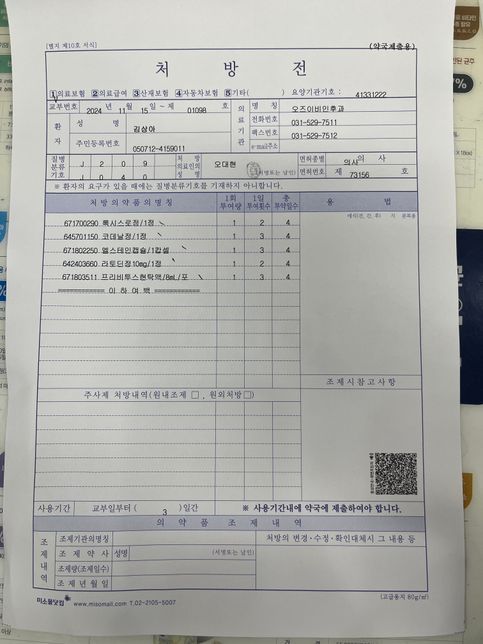 [별지 제10호 서식]
(약국제출용)
처 방 전
1 의료보험 2 의료급여 3 산재보험 4 자동차보험 5 기타( ) 요양기관기호 : 41331222
교부번호 2024 년 11 월 15 일 ~ 제 01098 호
환자
성 명 김상아
주민등록번호 050712-4159011
의료기관
명 칭 오즈이비인후과
전화번호 031-529-7511
팩스번호 031-529-7512
e-mail주소
질병분류기호
J 2 0 9
J 0 4 0
처방의료인의성명 오대현 (서명또는 날인)
면허종별 의사 의 사
면허번호 제 73156 호
※ 환자의 요구가 있을 때에는 질병분류기호를 기재하지 아니합니다.
처방의약품의명칭 1회투여량 1일투여횟수 총투약일수 용 법
671700290 록시스로정/1정 1 2 4
645701150 코데날정/1정 1 3 4
671802250 엘스테인캡슐/1캅셀 1 3 4
642403660 라토딘정10mg/1정 1 2 4
671803511 프리비투스현탁액/8mL/포 1 3 4
============ 이 하 여 백 ============
조제시참고사항
주사제 처방내역(원내조제 □ , 원외처방 □)
사용기간 교부일부터 ( 3 )일간 ※ 사용기간내에 약국에 제출하여야 합니다.
의 약 품 조 제 내 역
조제내역
조제기관의명칭
처방의 변경·수정·확인대체시 그 내용 등
조 제 약 사 성명 (서명또는 날인)
조제량(조제일수)
조 제 년 월 일
미소몰닷컴 www.misomall.com T.02-2105-5007
(고급용지 80g/㎡)